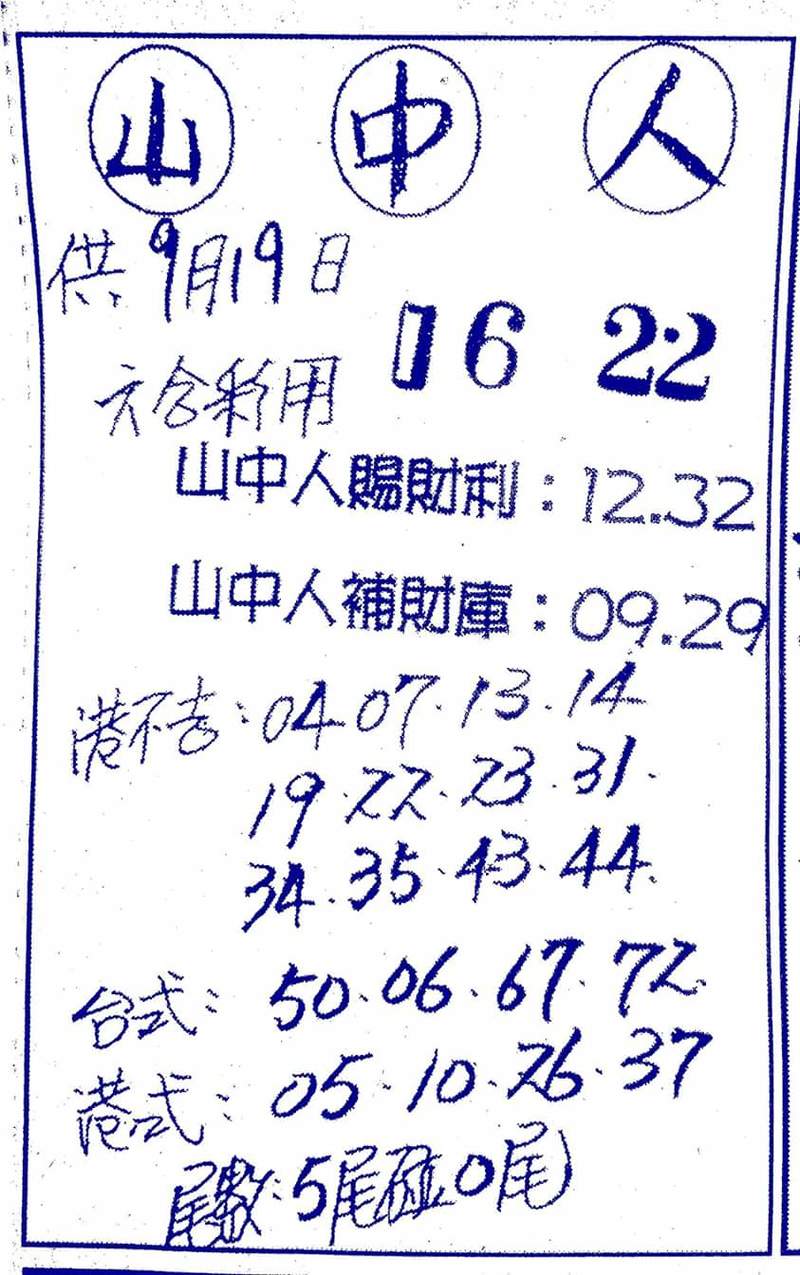 山 中 人
供9月19日
16 22
六合彩用
山中人賜財利：12.32
山中人補財庫：09.29
港不吉：04.07.13.14
19.22.23.31.
34.35.43.44.
台式：50.06.67.72.
港式：05.10.26.37
尾數：5尾碰0尾